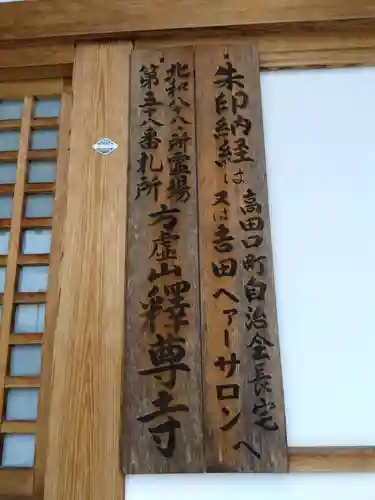 朱印納経は高田口町自治会長宅
又は吉田ヘアーサロンへ
北和八十八所霊場
第五十八番札所
方虚山釋尊寺